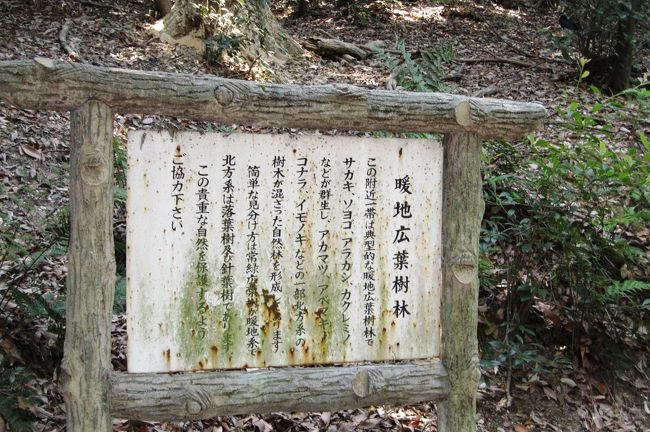 暖地広葉樹林
この附近一帯は典型的な暖地広葉樹林で
サカキ、ソヨゴ、アラカシ、カクレミノ
などが群生し、アカマツ、アベマキ、
コナラ、イモノキなどの一部北方系の
樹木が混ざった自然林を形成 ります
簡単な見分け方は常緑 な暖地系、
北方系は落葉樹及び針葉樹 なります
この貴重な自然を保護するよう
ご協力下さい。